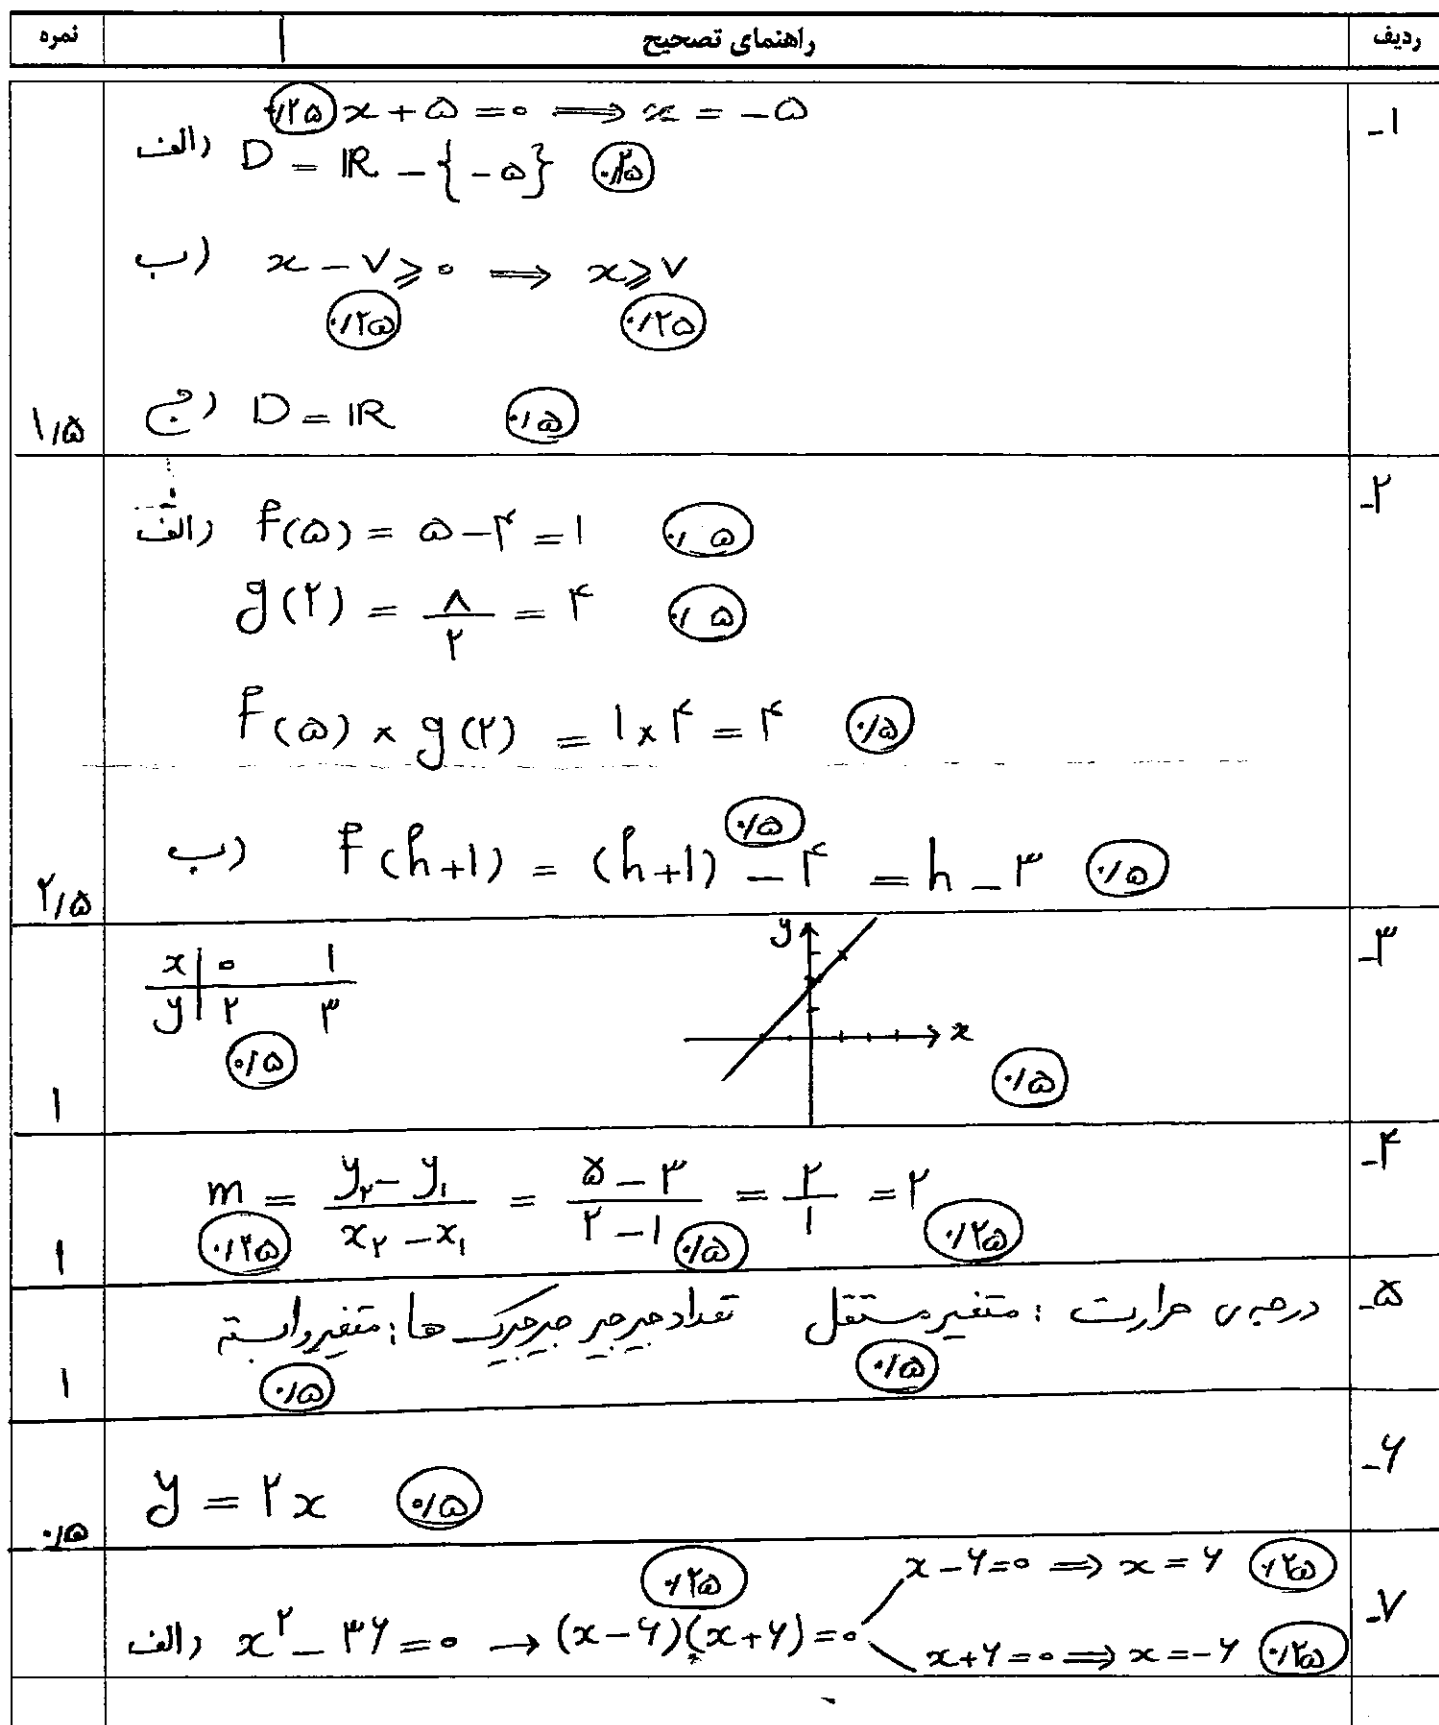 ردیف راهنمای تصحیح نمره
۱-
۰/۲۵ x + ۵ = ۰ ⟹ x = -۵
الف) D = ℝ - {-۵} ۰/۲۵
ب) x - ۷ ⩾ ۰ ⟹ x ⩾ ۷
۰/۲۵ ۰/۲۵
ج) D = ℝ ۰/۵
۱/۵
۲-
الف) f(۵) = ۵ - ۴ = ۱ ۰/۵
g(۲) = ۸/۲ = ۴ ۰/۵
f(۵) × g(۲) = ۱ × ۴ = ۴ ۰/۵
ب) f(h+۱) = (h+۱) - ۴ ۰/۵ = h - ۳ ۰/۵
۲/۵
۳-
x | ۰ ۱
y | ۲ ۳
۰/۵
y
x
۰/۵
۱
۴-
m = (y₂ - y₁)/(x₂ - x₁) = (۵ - ۳)/(۲ - ۱) = ۲/۱ = ۲
۰/۲۵ ۰/۵ ۰/۲۵
۱
۵-
درجه‌ی حرارت : متغیر مستقل تعداد جیرجیر جیرجیرک ها : متغیر وابسته
۰/۵ ۰/۵
۱
۶-
y = ۲x ۰/۵
۰/۵
۷-
الف) x² - ۳۶ = ۰ → (x-۶)(x+۶) = ۰ ۰/۲۵
x - ۶ = ۰ ⟹ x = ۶ ۰/۲۵
x + ۶ = ۰ ⟹ x = -۶ ۰/۲۵